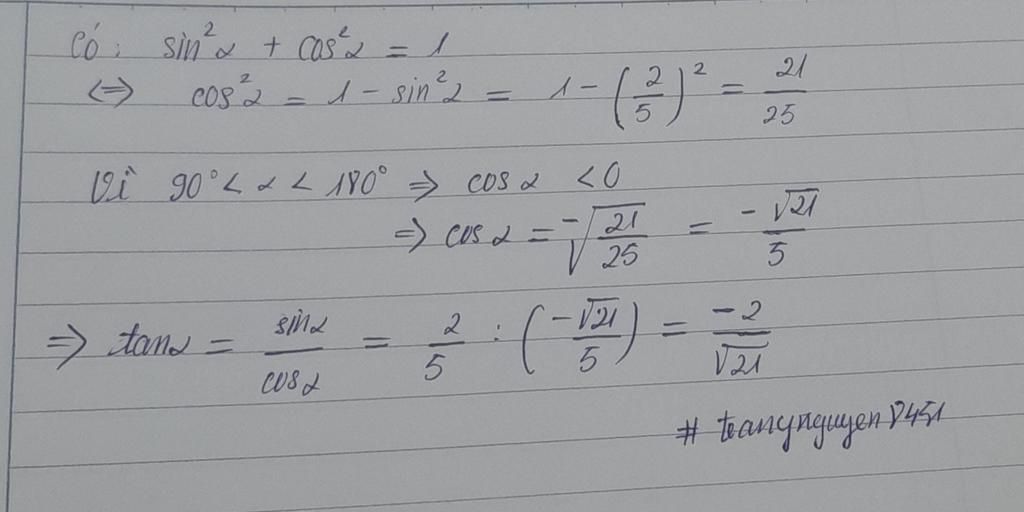 Có: sin²α + cos²α = 1
⇔ cos²α = 1 - sin²α = 1 - (2/5)² = 21/25
Vì 90° < α < 180° ⇒ cosα < 0
⇒ cosα = -√(21/25) = -√21/5
⇒ tanα = sinα/cosα = 2/5 : (-√21/5) = -2/√21